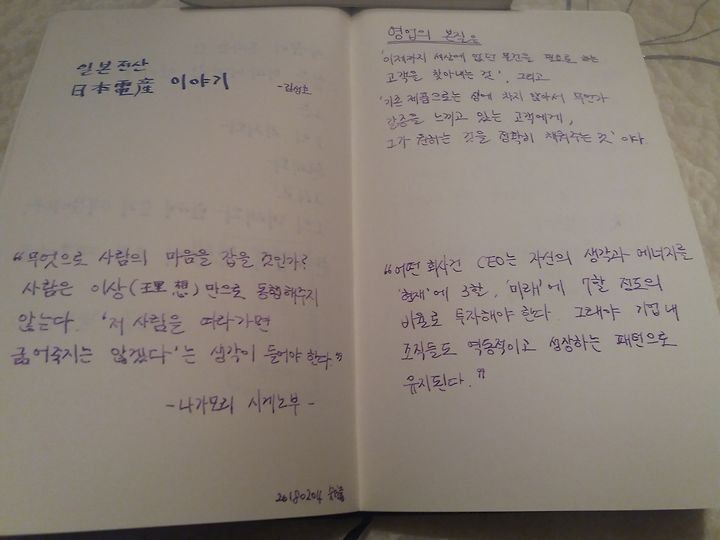 일본전산
日本電産 이야기
-김성호
"무엇으로 사람의 마음을 잡을 것인가?
사람은 이상(理想)만으로 동참해주지
않는다. '저 사람을 따라가면
굶어죽지는 않겠다'는 생각이 들어야 한다."
-나가모리 시게노부-
20180204
영업의 본질은
'이제까지 세상에 없던 물건을 필요로 하는
고객을 찾아내는 것', 그리고
'기존 제품으로는 성에 차지 않아서 무언가
갈증을 느끼고 있는 고객에게,
그가 원하는 것을 정확히 채워주는 것'이다.
"어떤 회사건 CEO는 자신의 생각과 에너지를
'현재'에 3할, '미래'에 7할 정도의
비율로 투자해야 한다. 그래야 기업 내
조직들도 역동적이고 성장하는 패턴으로
유지된다."